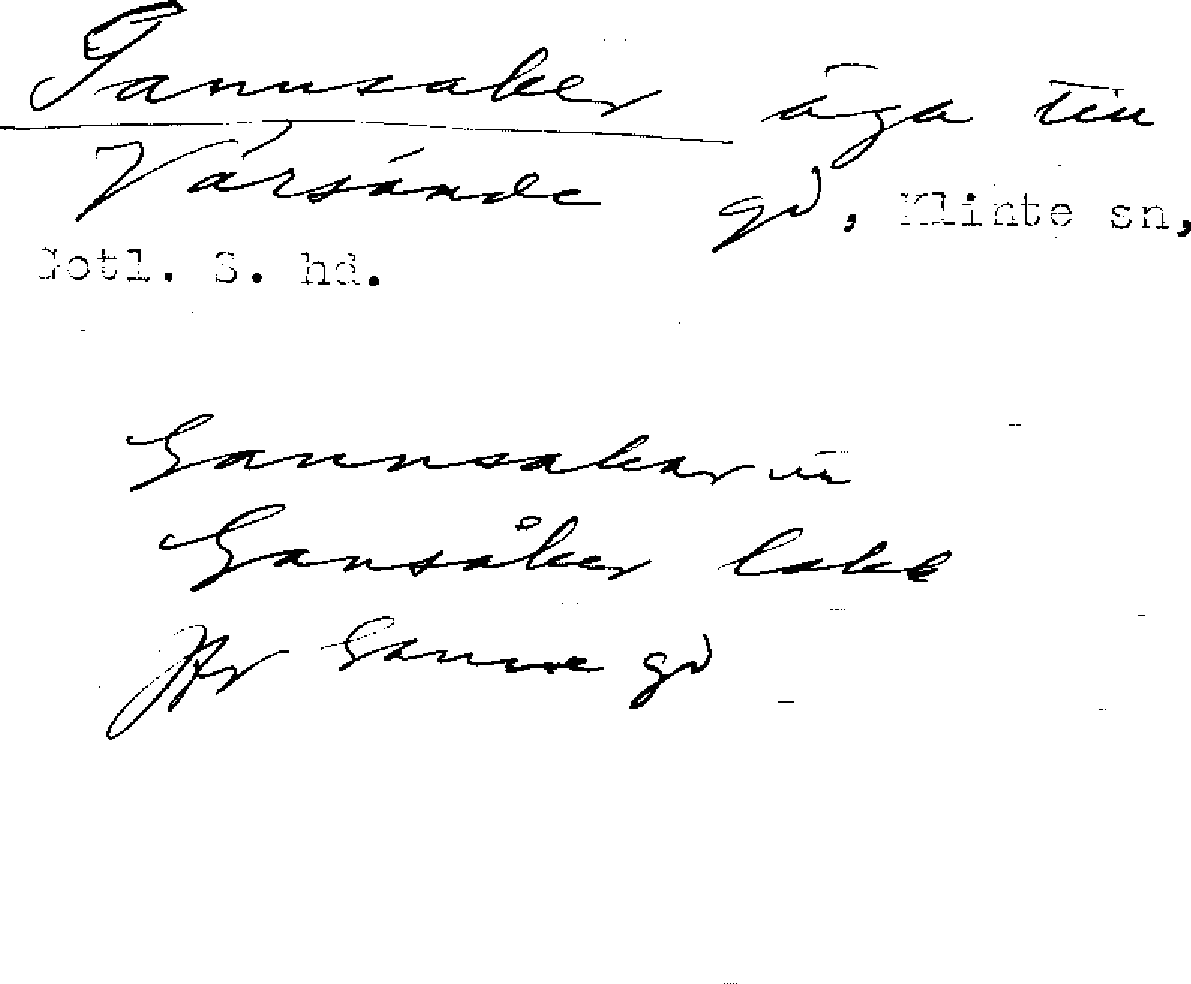 Gannsaker äga till
Värsände gd, Klinte sn,
Gotl. S. hd.
Gannsakar in
Gansåker lakk
Jfr Ganne gd